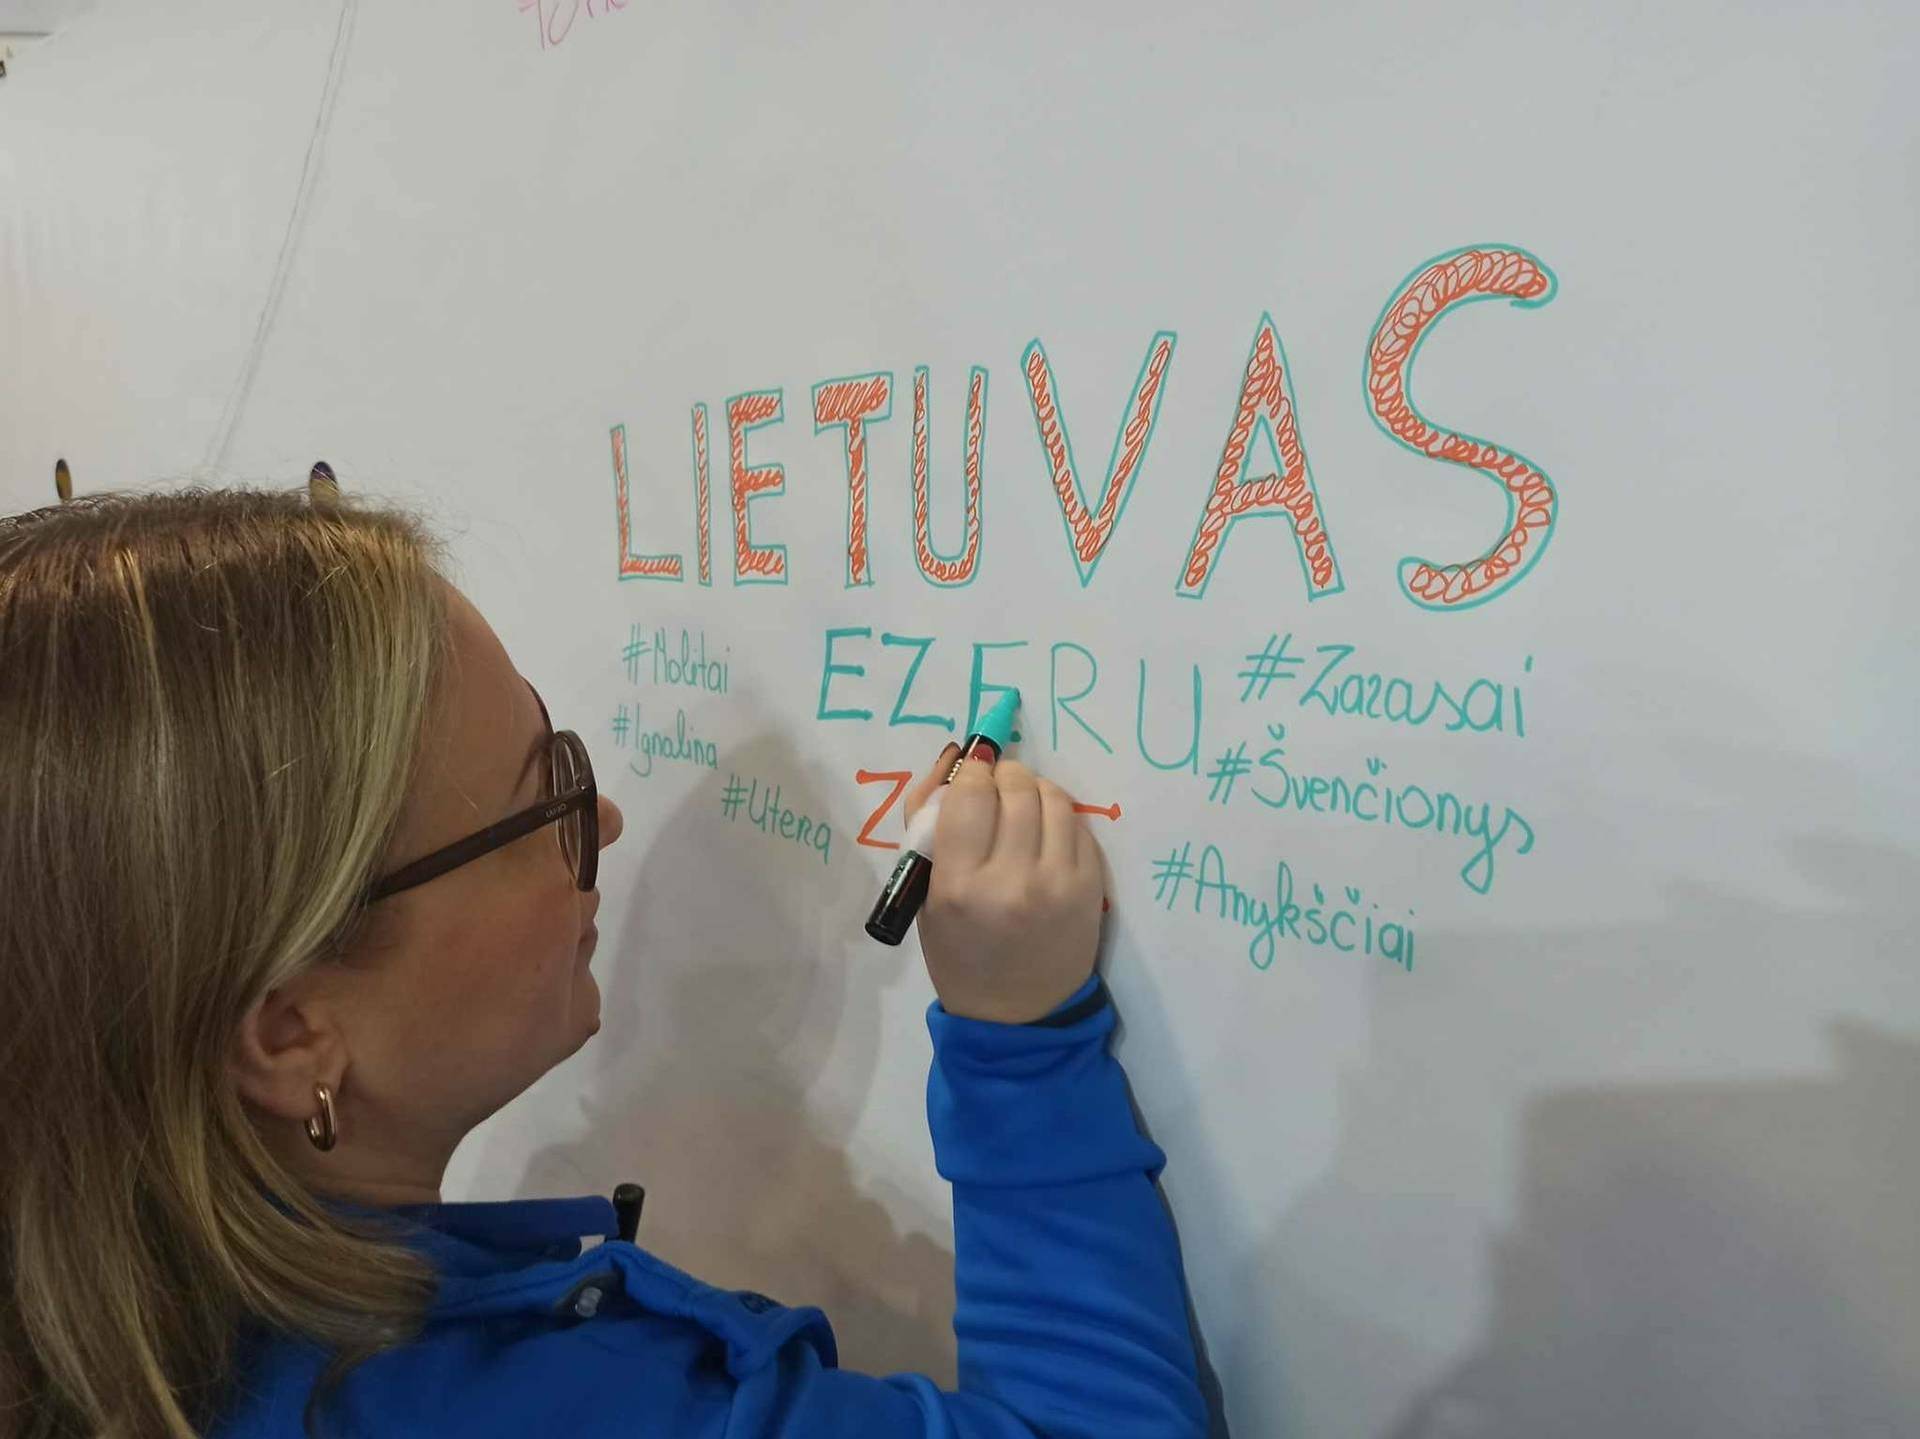 LIETUVAS
EZERU
#Molitai
#Ignalina
#Utena
#Zarasai
#Švenčionys
#Anykščiai